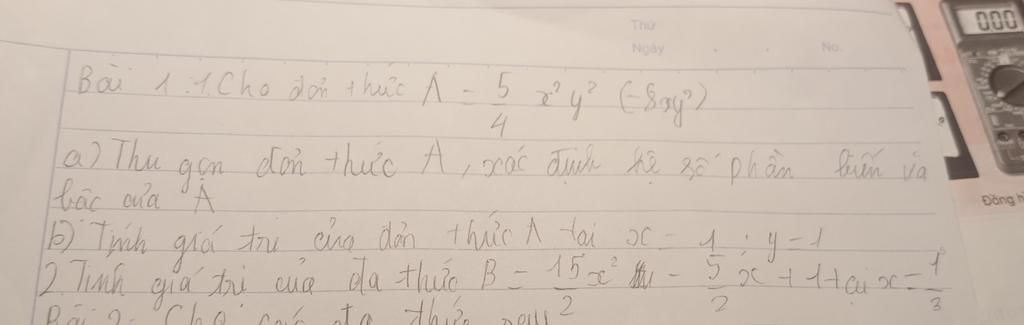 Thứ
Ngày No.
000
Bài 1:1.Cho đơn thức A = 5/4 x²y² (-8xy²)
a) Thu gọn đơn thức A, xác định hệ số phần biến và
bậc của A
b) Tính giá trị của đơn thức A tại x = 1; y = 1
2. Tính giá trị của đa thức B = 15/2 x² - 5/2 x + 1 tại x = 1/3
Bài 2: Cho các đa thức sau
Đồng h